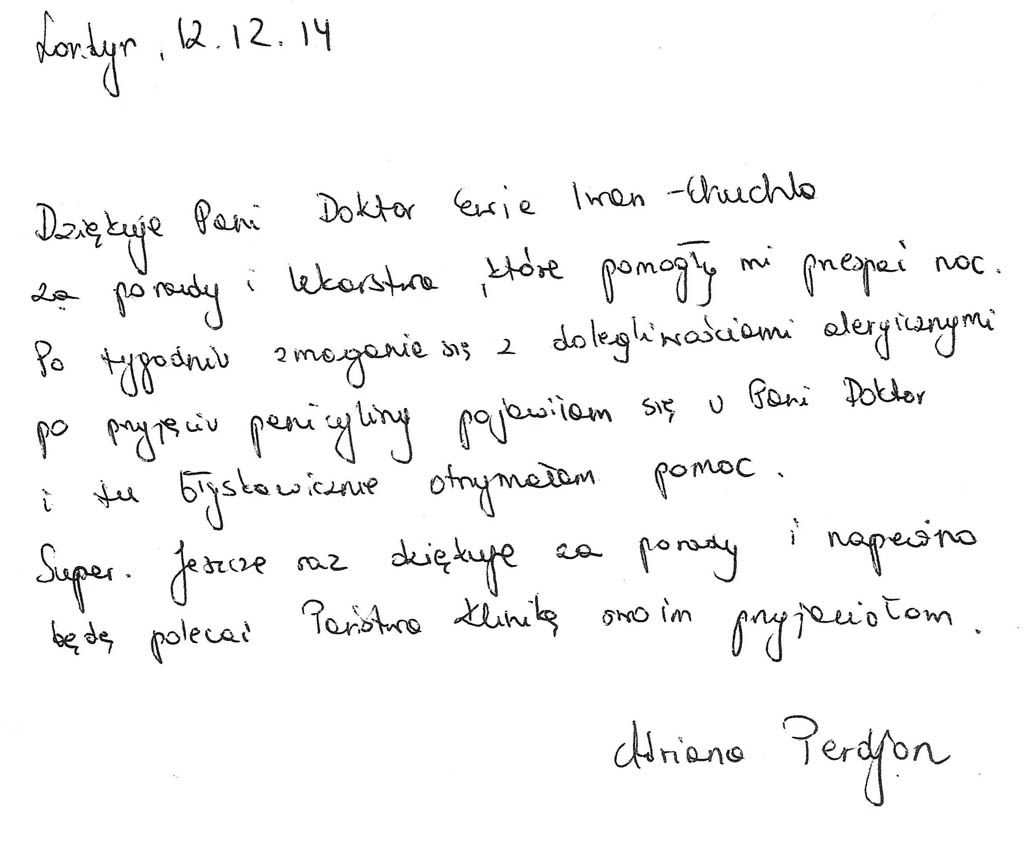 Londyn, 12.12.14
Dziękuje Pani Doktor Ewie Iwan-Chuchla
za porady i lekarstwa, które pomogły mi przespać noc.
Po tygodniu zmagania się z dolegliwościami alergicznymi
po przyjęciu penicyliny pojawiłam się u Pani Doktor
i tu błyskawicznie otrzymałam pomoc.
Super. Jeszcze raz dziękuję za porady i napewno
będę polecać Państwa klinikę swoim przyjaciołom.
Adriana